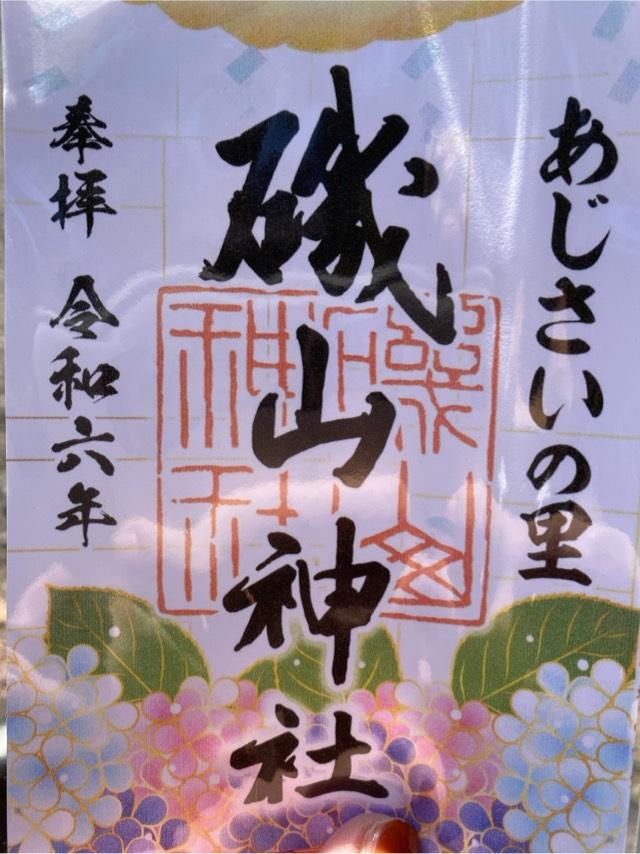 あじさいの里
磯山神社
奉拝 令和六年